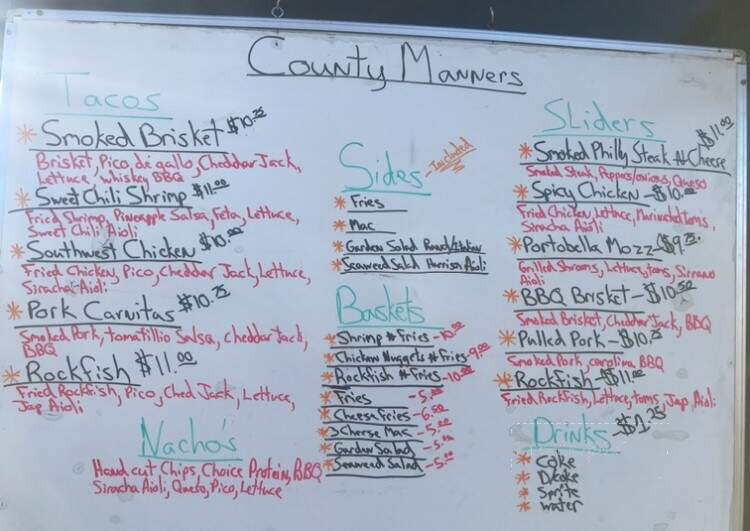 County Manners
Tacos
* Smoked Brisket $10.25
Brisket, Pico de gallo, Cheddar Jack,
Lettuce, whiskey BBQ
* Sweet Chili Shrimp $11.00
Fried Shrimp, Pineapple Salsa, Feta, Lettuce,
Sweet Chili Aioli
* Southwest Chicken $10.00
Fried Chicken, Pico, Cheddar Jack, Lettuce,
Siracha Aioli
* Pork Carnitas $10.25
Smoked Pork, tomatillio Salsa, cheddar Jack,
BBQ
* Rockfish $11.00
Fried Rockfish, Pico, Ched Jack, Lettuce,
Jap Aioli
Nacho's
Hand cut Chips, Choice Protein, BBQ
Siracha Aioli, Queso, Pico, Lettuce
Sides - Included
* Fries
* Mac
* Garden Salad Ranch/Italian
* Seaweed Salad Harrisa Aioli
Baskets
* Shrimp # Fries - 10.00
* Chicken Nuggets # Fries - 9.00
* Rockfish # Fries - 10.00
* Fries - 5.00
* Cheese Fries - 6.00
* 3 Cheese Mac - 5.00
* Garden Salad - 5.00
* Seaweed Salad - 5.00
Sliders
* Smoked Philly Steak # Cheese $11.00
Smoked Steak, Peppers/onions, Queso
* Spicy Chicken - $10.00
Fried Chicken, Lettuce, Marinated Toms,
Siracha Aioli
* Portobella Mozz - $9.75
Grilled Shrooms, Lettuce, toms, Sirrano
Aioli
* BBQ Brisket - $10.50
Smoked Brisket, Cheddar Jack, BBQ
* Pulled Pork - $10.25
Smoked Pork, carolina BBQ
* Rockfish - $11.00
Fried Rockfish, Lettuce, toms, Jap Aioli
Drinks - $1.25
* Coke
* D.coke
* Sprite
* water